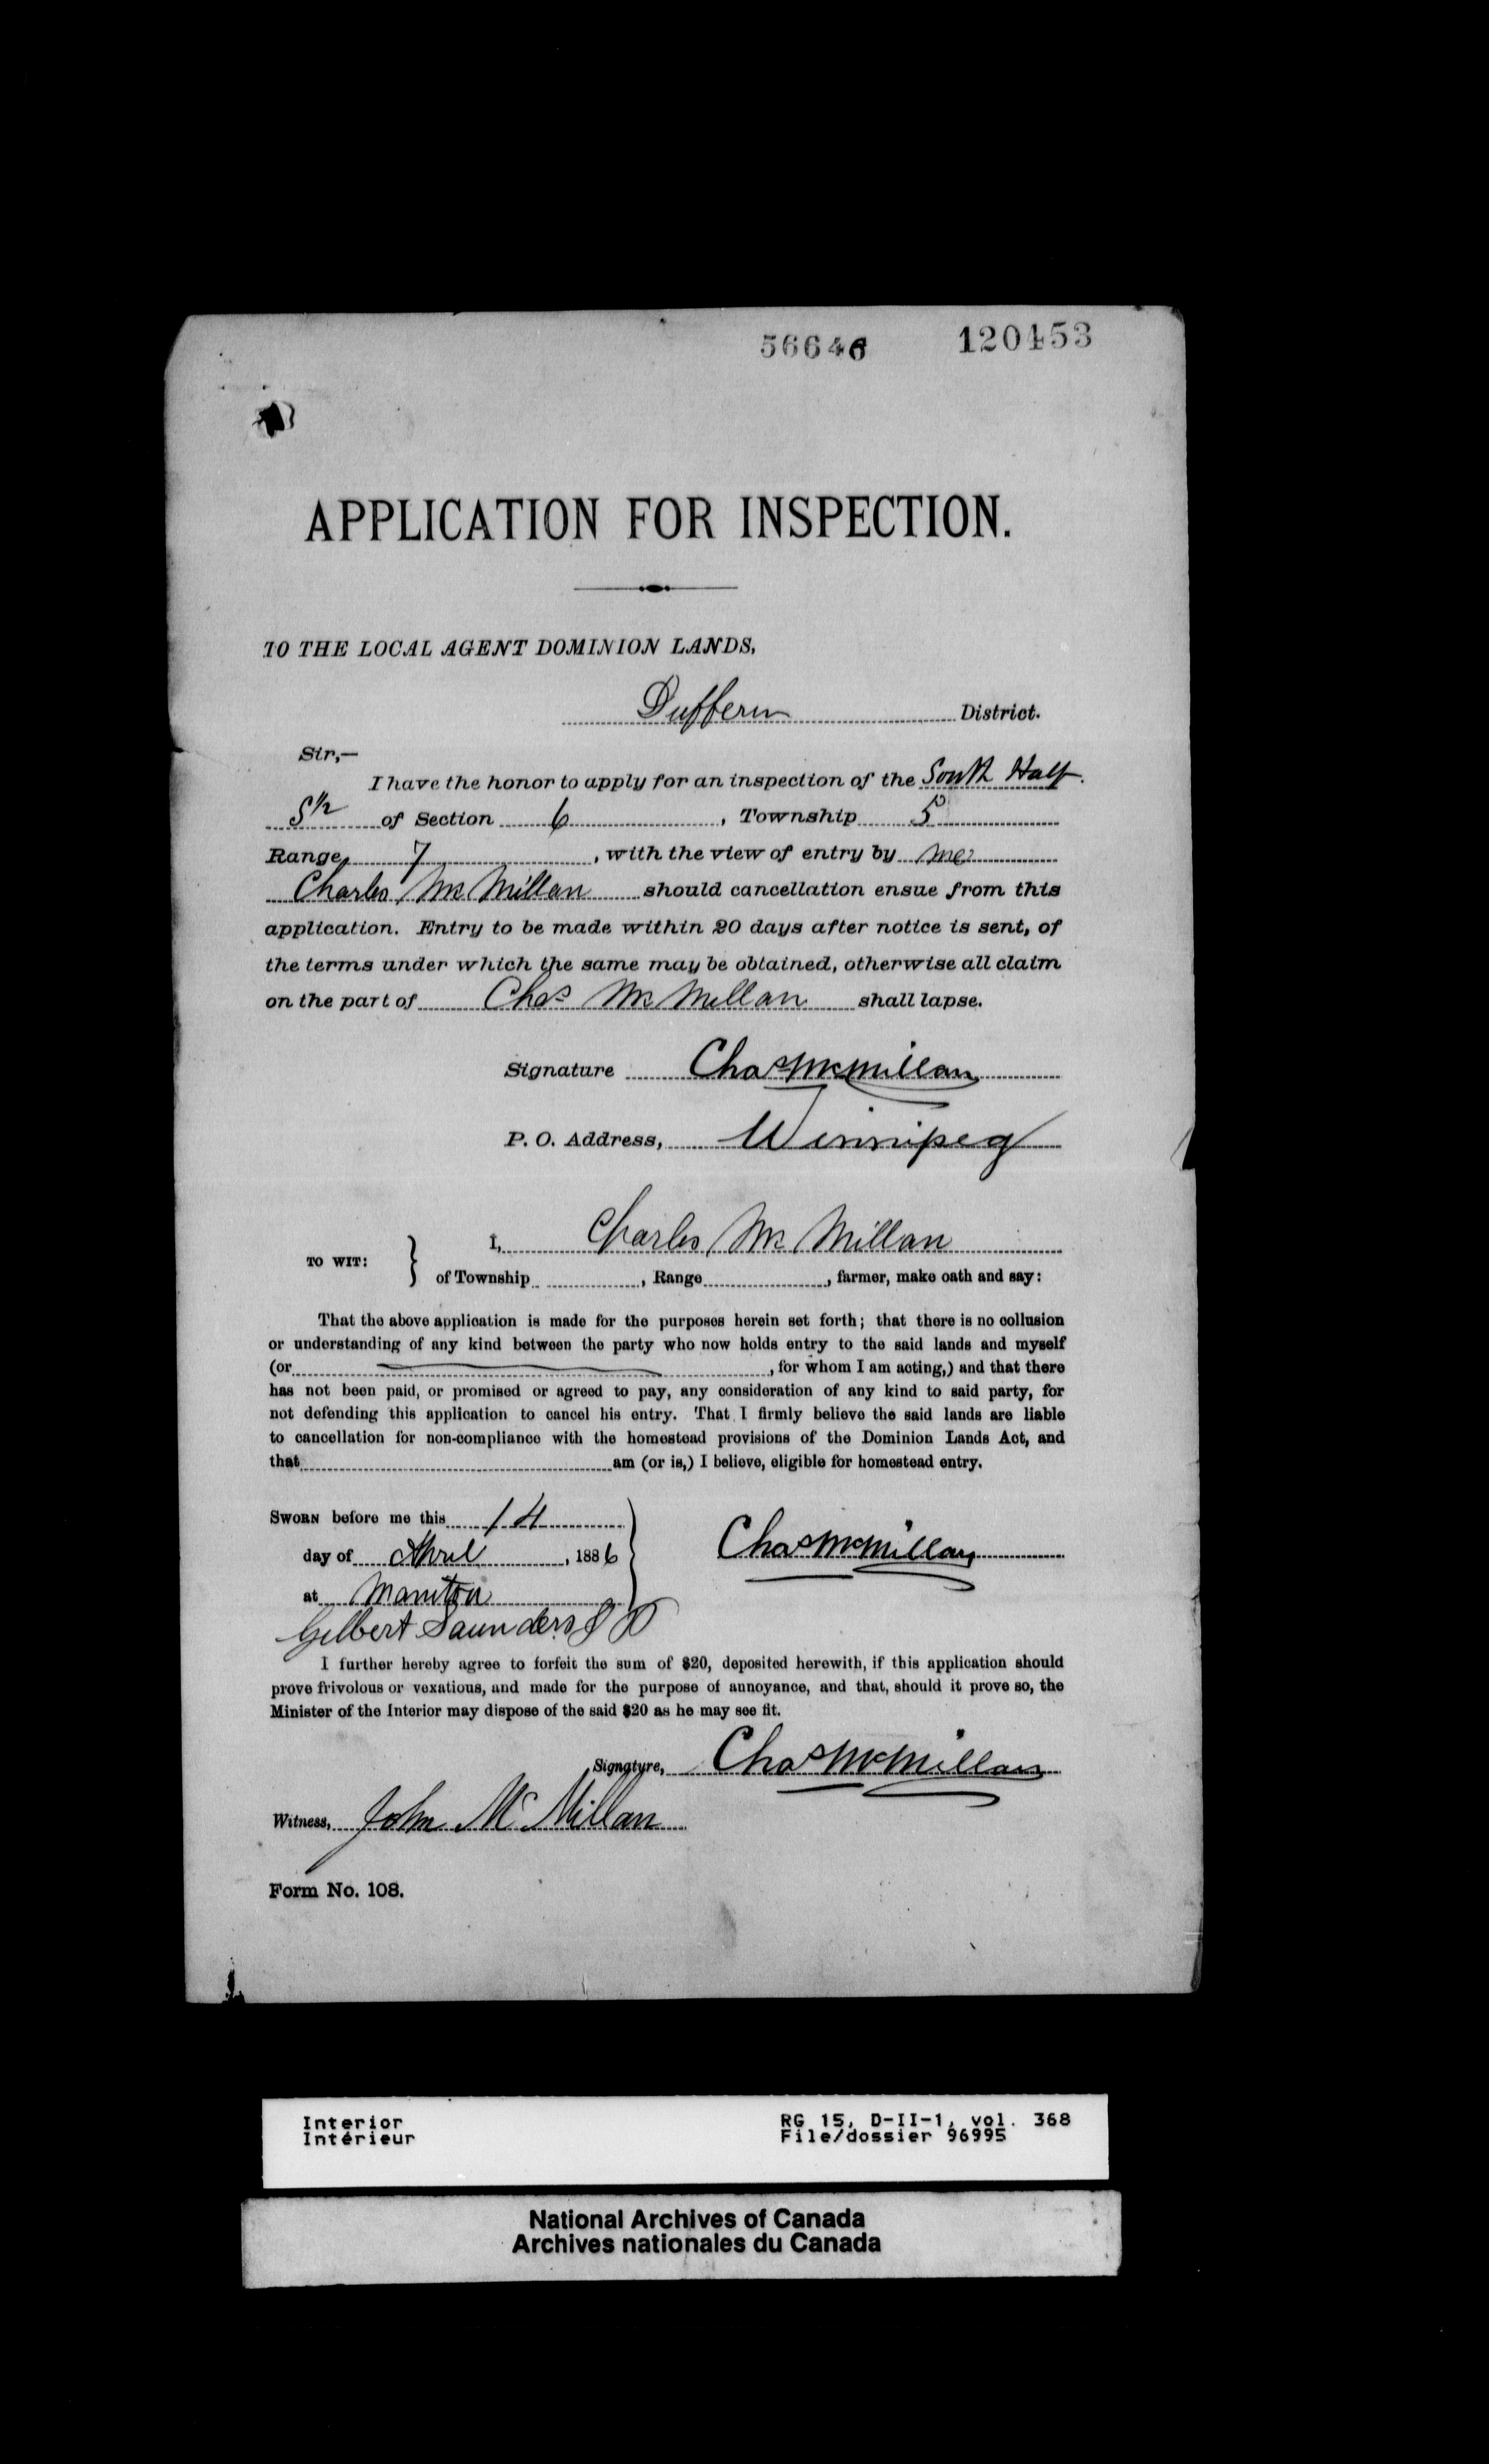 56646 120453
APPLICATION FOR INSPECTION.
TO THE LOCAL AGENT DOMINION LANDS,
Dufferin District.
Sir,—
I have the honor to apply for an inspection of the South Half.
S½ of Section 6, Township 5
Range 7, with the view of entry by me
Charles McMillan should cancellation ensue from this
application. Entry to be made within 20 days after notice is sent, of
the terms under which the same may be obtained, otherwise all claim
on the part of Chas McMillan shall lapse.
Signature Chas McMillan
P. O. Address, Winnipeg
I, Charles McMillan
TO WIT: }
of Township , Range , farmer, make oath and say:
That the above application is made for the purposes herein set forth; that there is no collusion
or understanding of any kind between the party who now holds entry to the said lands and myself
(or , for whom I am acting,) and that there
has not been paid, or promised or agreed to pay, any consideration of any kind to said party, for
not defending this application to cancel his entry. That I firmly believe the said lands are liable
to cancellation for non-compliance with the homestead provisions of the Dominion Lands Act, and
that am (or is,) I believe, eligible for homestead entry.
SWORN before me this 14
day of April, 1886 } Chas McMillan
at Manitou
Gilbert Saunders J P
I further hereby agree to forfeit the sum of $20, deposited herewith, if this application should
prove frivolous or vexatious, and made for the purpose of annoyance, and that, should it prove so, the
Minister of the Interior may dispose of the said $20 as he may see fit.
Signature, Chas McMillan
Witness, John McMillan
Form No. 108.
Interior RG 15, D-II-1, vol. 368
Intérieur File/dossier 96995
National Archives of Canada
Archives nationales du Canada